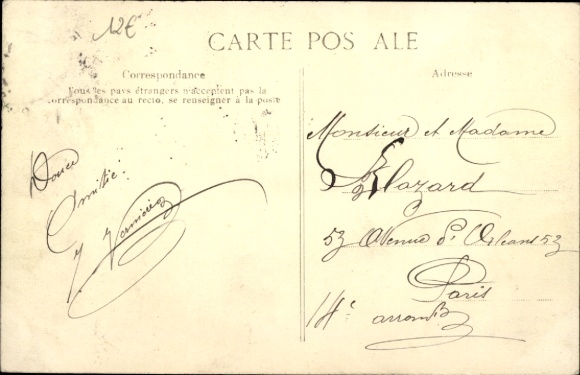 12€
CARTE POSTALE
Correspondance
Tous les pays étrangers n'acceptent pas la
correspondance au recto, se renseigner à la poste
Douce
Amitié.
Adresse
Monsieur et Madame
Lazard
53 Avenue d'Orléans 53
Paris
14e arrondt